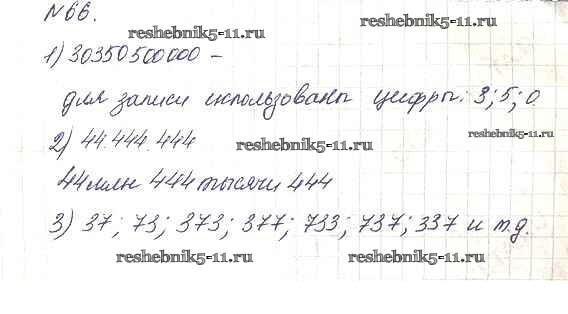 №66.
reshebnik5-11.ru
reshebnik5-11.ru
1) 30350500000 –
для записи использованы цифры: 3; 5; 0.
reshebnik5-11.ru
2) 44.444.444
reshebnik5-11.ru
44 млн 444 тысячи 444
3) 37; 73; 373; 377; 733; 737; 337 и т.д.
reshebnik5-11.ru
reshebnik5-11.ru